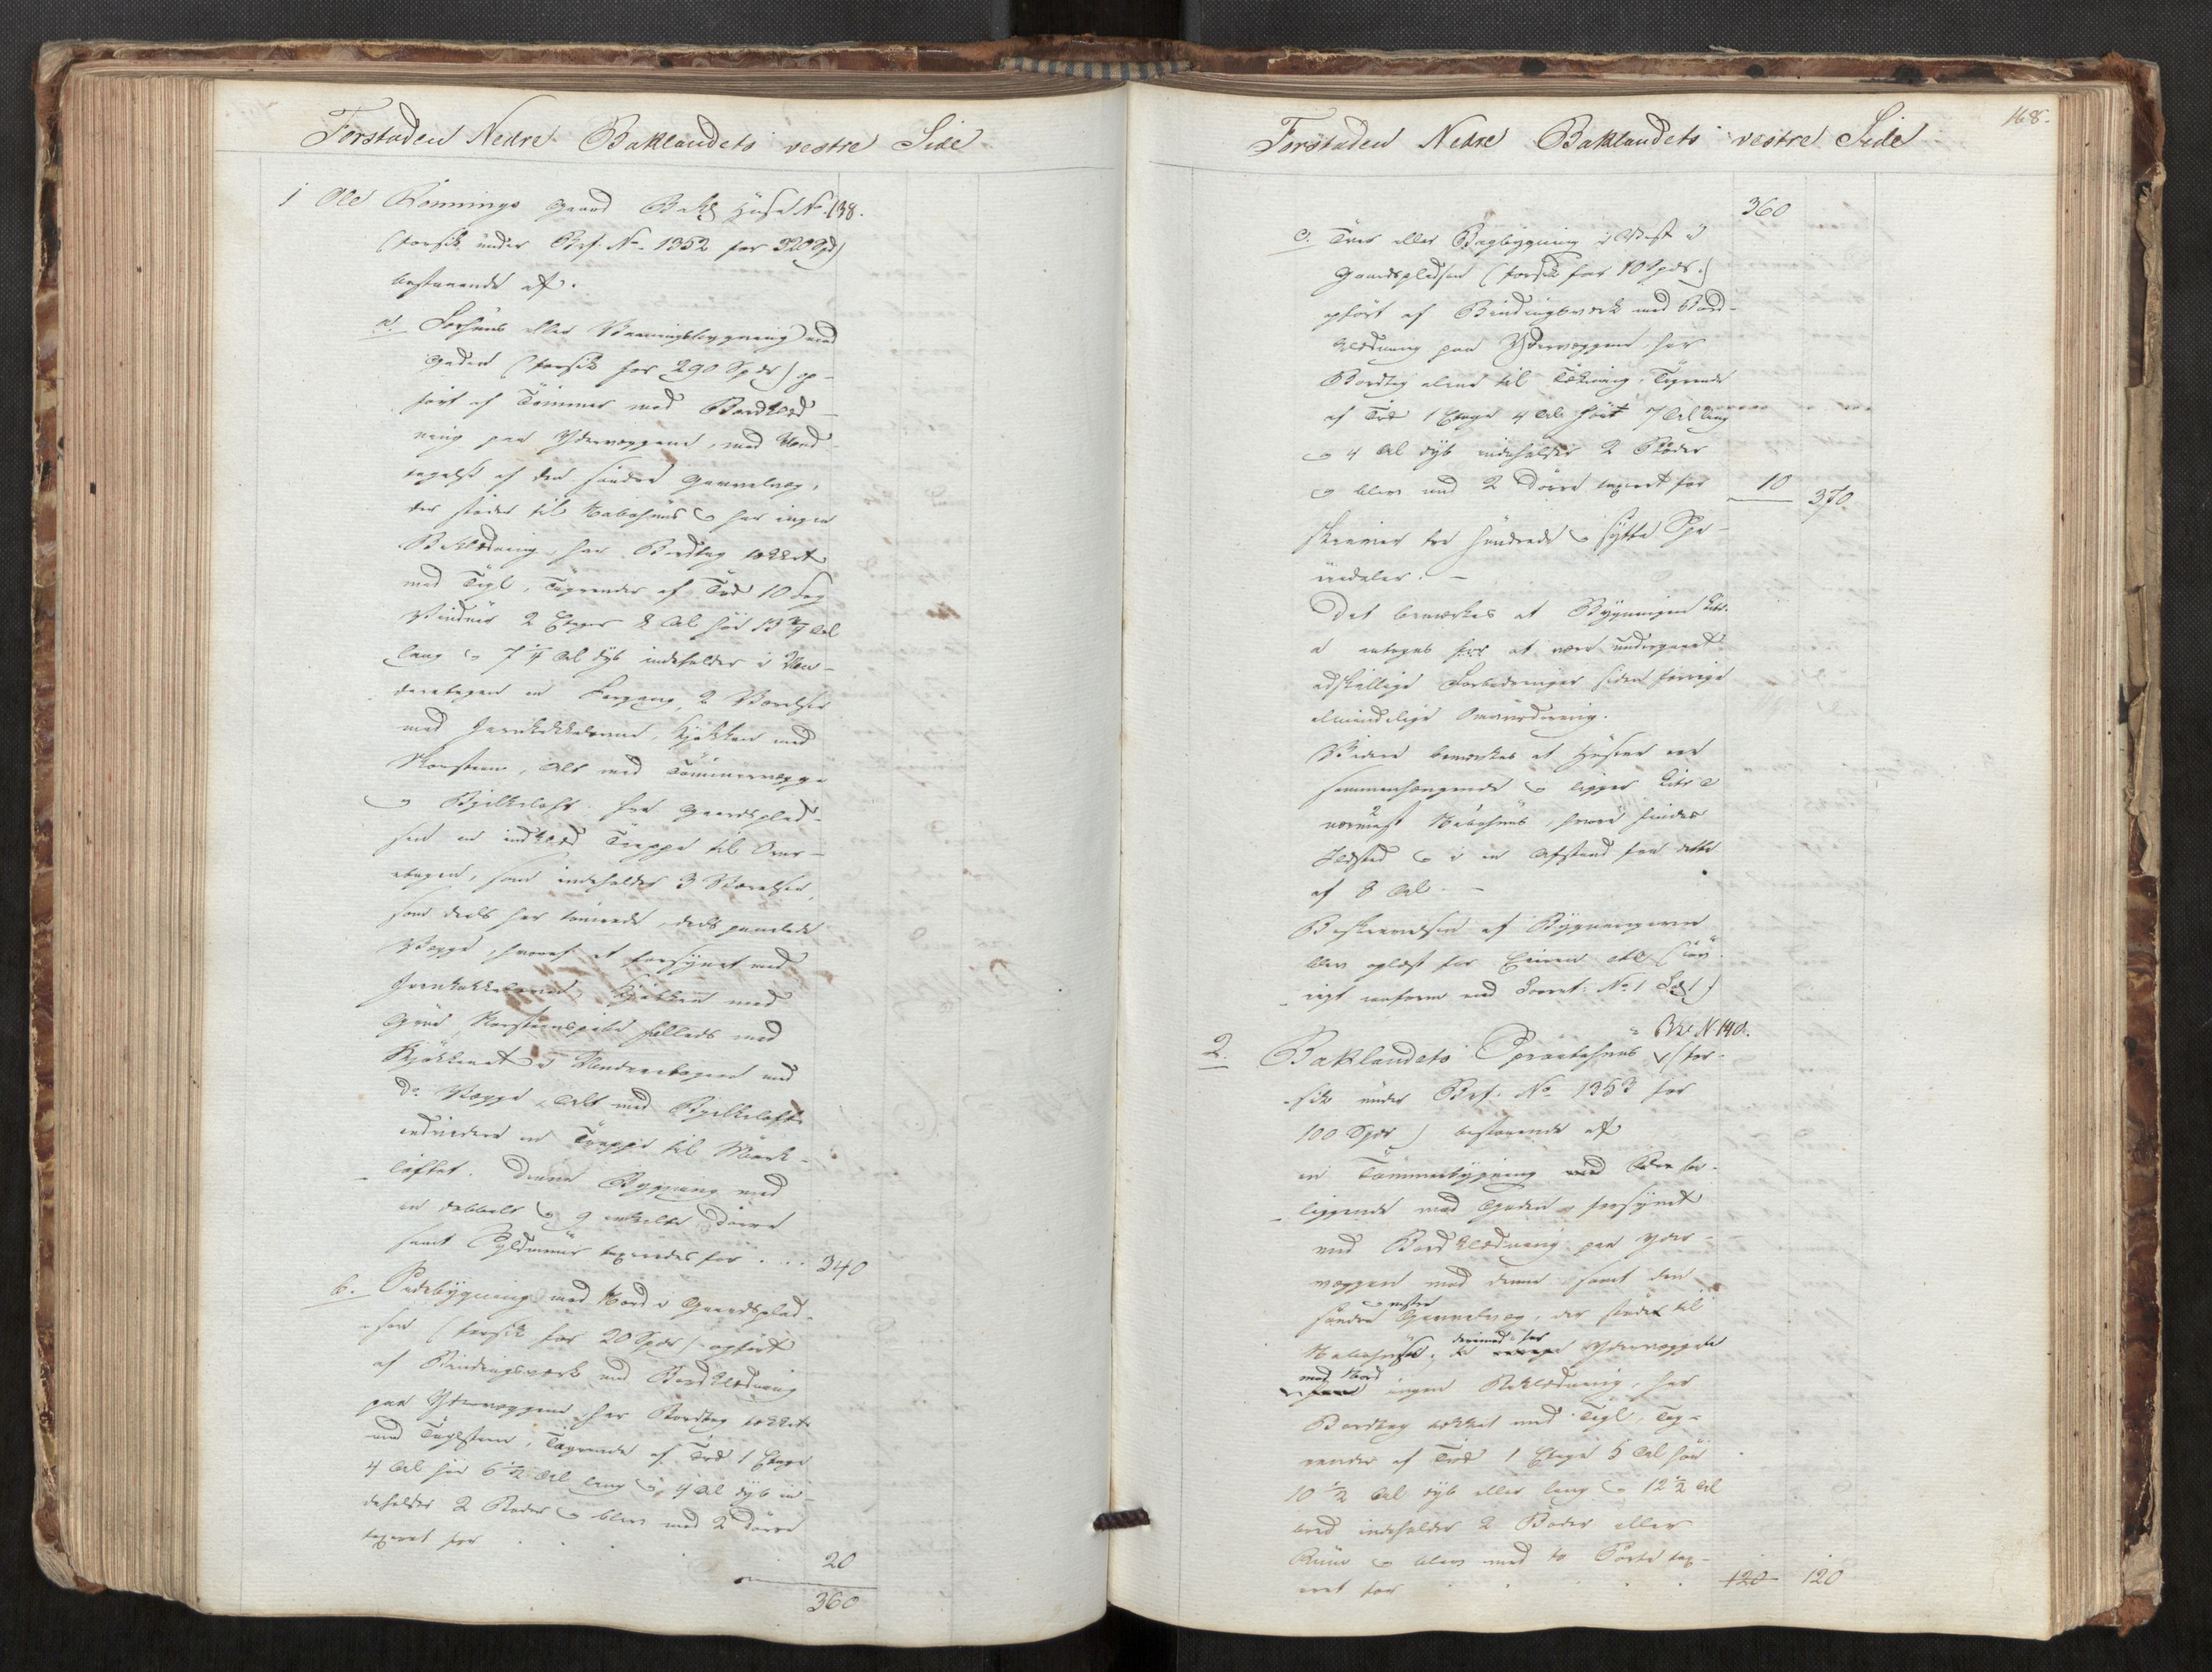 Forstaden Nedre Baklandets vestre Side
1 Ole Rønnings Gaard Bakl Huse No. 138.
(forsik. under Brf. No. 1352 for 320 Spd)
bestaaende af.
a. Forhuus eller Vaaningsbygning mod
Gaden (forsik for 290 Spdr) op-
ført af Tømmer med Bordklæd-
ning paa Ydervæggene, med Und-
tagelse af den søndre Gavelvæg,
der støder til Nabohuus og har ingen
Beklædning, har Bordtag tækket
med Tegl, Tagrender af Træ 10 Fag
Vinduer 2 Etager 8 Al. høi 13 3/4 Al
lang og 7 1/4 Al dyb indeholder i Un-
deretagen en Forgang, 2 Værelser
med Jernkakkelovne, Kjøkken med
Skorsteen, Alt med Tømmervægge
og Bjelkeloft. Fra Gaardsplad-
sen en indklæd Trappe til Over-
etagen, som indeholder 3 Værelser,
som deels har tømrede, deels panelede
Vægge, hvoraf et forsynet med
Jernkakkelovn, Kjøkken med
Grue, Skorsteenspibe fælleds med
Kjøkkenet i Underetagen med
Do Vægge, Alt med Bjelkeloft.
endvidere en Trappe til Mørk-
loftet. Denne Bygning med
en dobbelt og 9 enkelte Dørre
samt Fyldmuur taxeredes for . . . 340
b. Sidebygning mod Nord i Gaardsplad-
sen (forsik for 20 Spdr) opført
af Bindingsværk med Bordklædning
paa Ydervæggene har Bordtag tækket
med Taglsteen, Tagrende af Træ 1 Etage
4 Al høi 6 1/2 Al lang og 4 Al dyb in-
deholder 2 Boder og blev med 2 Dørre
taxeret for . . . . 20
360
168.
Forstaden Nedre Baklandets vestre Side
360
c. Tvær eller Bagbygning i Vest i
Gaardspladsen (forsik for 10 Spdr.)
opført af Bindingsværk med Bord-
klædning paa Ydervæggene har
Bordtag alene til Tækning, Tagrende
af Træ 1 Etage 4 Al høi 7 Al lang
og 4 Al dyb indeholder 2 Boder
og blev med 2 Dørre taxeret for 10 370.
skriver tre Hundrede og sytti Spe-
ciedaler. -
Det bemærkes at Bygningen Litr.
a antages for at være undergaaet
adskillige Forbedringer siden forrige
almindelige Omvurdering.
Videre bemærkes at Husene ere
sammenhængende og ligger Litr c
nærmest Nabohuus, hvori findes
Ildsted og i en Afstand fra dette
af 8 Al. -
Beskrivelsen af Bygningerne
blev oplæst for Eieren etc (øv-
rigt conform med Forret: No. 1
2. Baklandets Sprøitehuus Bkl N 140. (for-
sik under Brf. No 1353 for
100 Spdr) bestaaende af
en Tømmerbygning
liggende mod Gaden forsynet
med Bordklædning paa Yder-
væggen mod denne samt den
søndre og vestre Gavelvæg, der støder til
Nabohuset. derimod har Ydervæggen
mod Nord ingen Beklædning, har
Bordtag tækket med Tegl, Tag-
render af Træ 1 Etage 5 Al høi
10 1/2 Al dyb eller lang og 12 1/2 Al
bred indeholder 2 Boder eller
Rum og blev med to Porte tax-
eret for . . . . 120 120